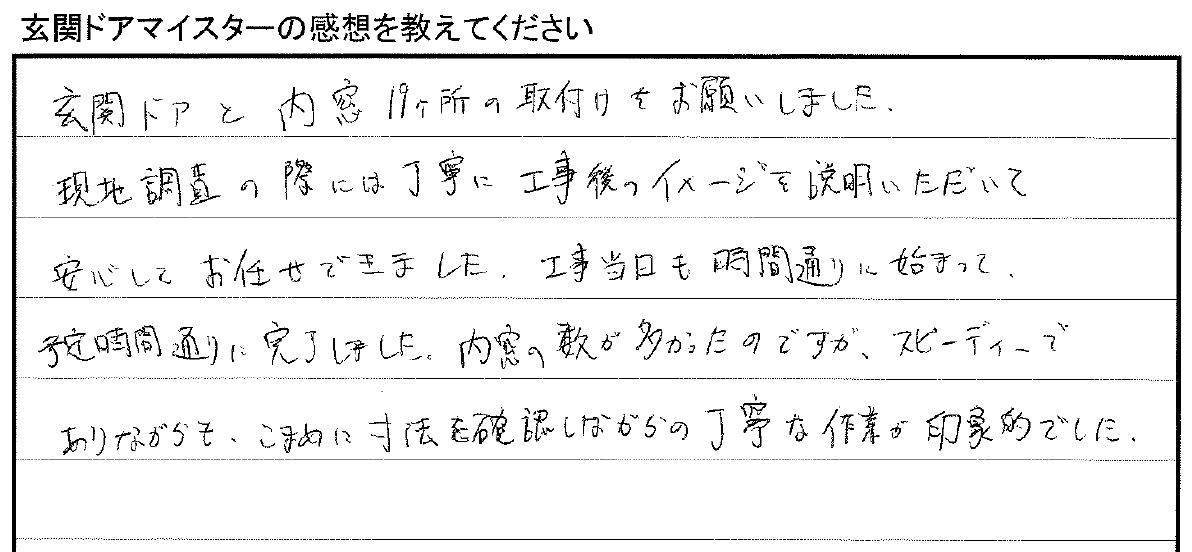 玄関ドアマイスターの感想を教えてください
玄関ドアと内窓19ヶ所の取付けをお願いしました。
現地調査の際には丁寧に工事後のイメージを説明いただいて
安心してお任せできました。工事当日も時間通りに始まって、
予定時間通りに完了しました。内窓の数が多かったのですが、スピーディーで
ありながらも、こまめに寸法を確認しながらの丁寧な作業が印象的でした。